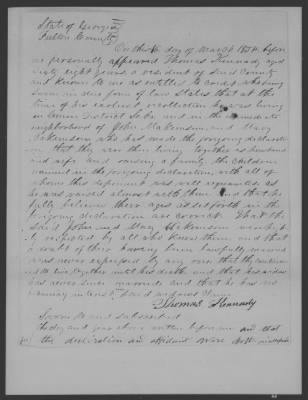 State of Georgia
Fulton County
On the 16 day of March 1854 before
me personally appeared Thomas Kennady aged
sixty eight years a resident of said County
and known to me as entitled to credit who being
sworn in due form of law states that at the
time of his earliest recollection he was living
in District So in the immediate
neighborhood of John Makemson and Mary
Makemson who has made the foregoing declaration
that they were then living together as husband
and wife and raising a family the children
named in the foregoing declaration with all of
whom this deponent was well acquainted as
he was raised almost with them and that he
fully believes their ages as set forth in the
foregoing declaration are correct. That the
said John and Mary Makemson were high
ly respected by all who knew them and that
a doubt of their having been lawfully married
was never expressed by any one that they continued
to live together until his death and that his widow
has never since married and that he has no
pecuniary interest
Thomas Kennady
Sworn to and subscribed
the day and year above written before me and that
the declaration and affidavit were both